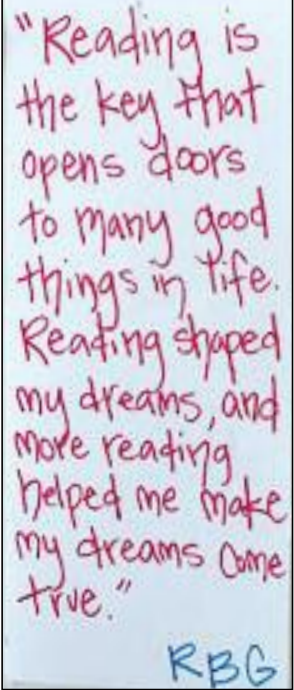 "Reading is
the key that
opens doors
to many good
things in life.
Reading shaped
my dreams, and
more reading
helped me make
my dreams come
true."
RBG